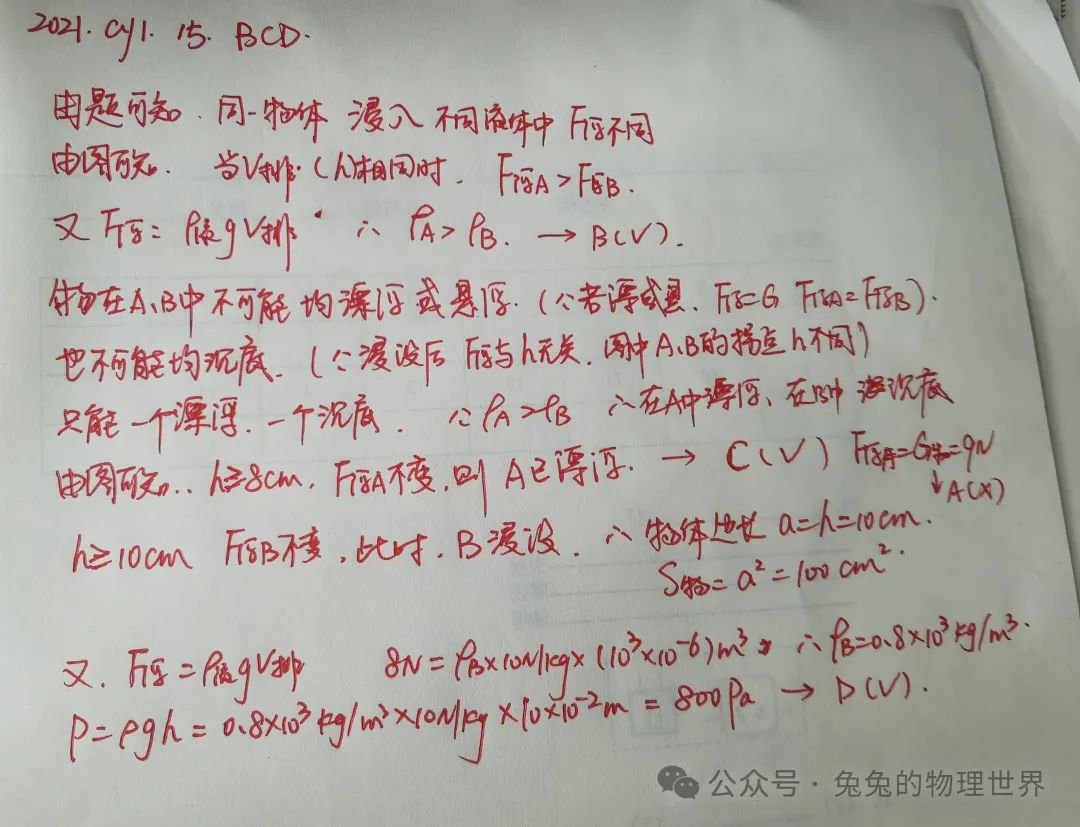 2021. cy1. 15. BCD.
由题可知. 同一物体 浸入 不同液体中 F浮不同
由图可知. 当V排(h)相同时. F浮A>F浮B.
又 F浮=ρ液gV排 ∴ ρA>ρB. → B(√).
物在A、B中不可能均漂浮或悬浮. (∵若漂或悬. F浮=G F浮A=F浮B).
也不可能均沉底. (∵浸没后 F浮与h无关. 图中A、B的拐点h不同)
只能一个漂浮. 一个沉底. ∵ρA>ρB ∴在A中漂浮、在B中 沉底
由图可知.. h≥8cm. F浮A不变. 则 A已漂浮. → C(√) F浮A=G物=9N
↓A(×)
h≥10cm F浮B不变. 此时. B浸没. ∴ 物体边长 a=h=10cm.
S物=a²=100cm².
又. F浮=ρ液gV排 8N=ρB×10N/kg×(10³×10⁻⁶)m³ ∴ρB=0.8×10³kg/m³.
P=ρgh=0.8×10³kg/m³×10N/kg×10×10⁻²m=800Pa → D(√).
公众号·兔兔的物理世界